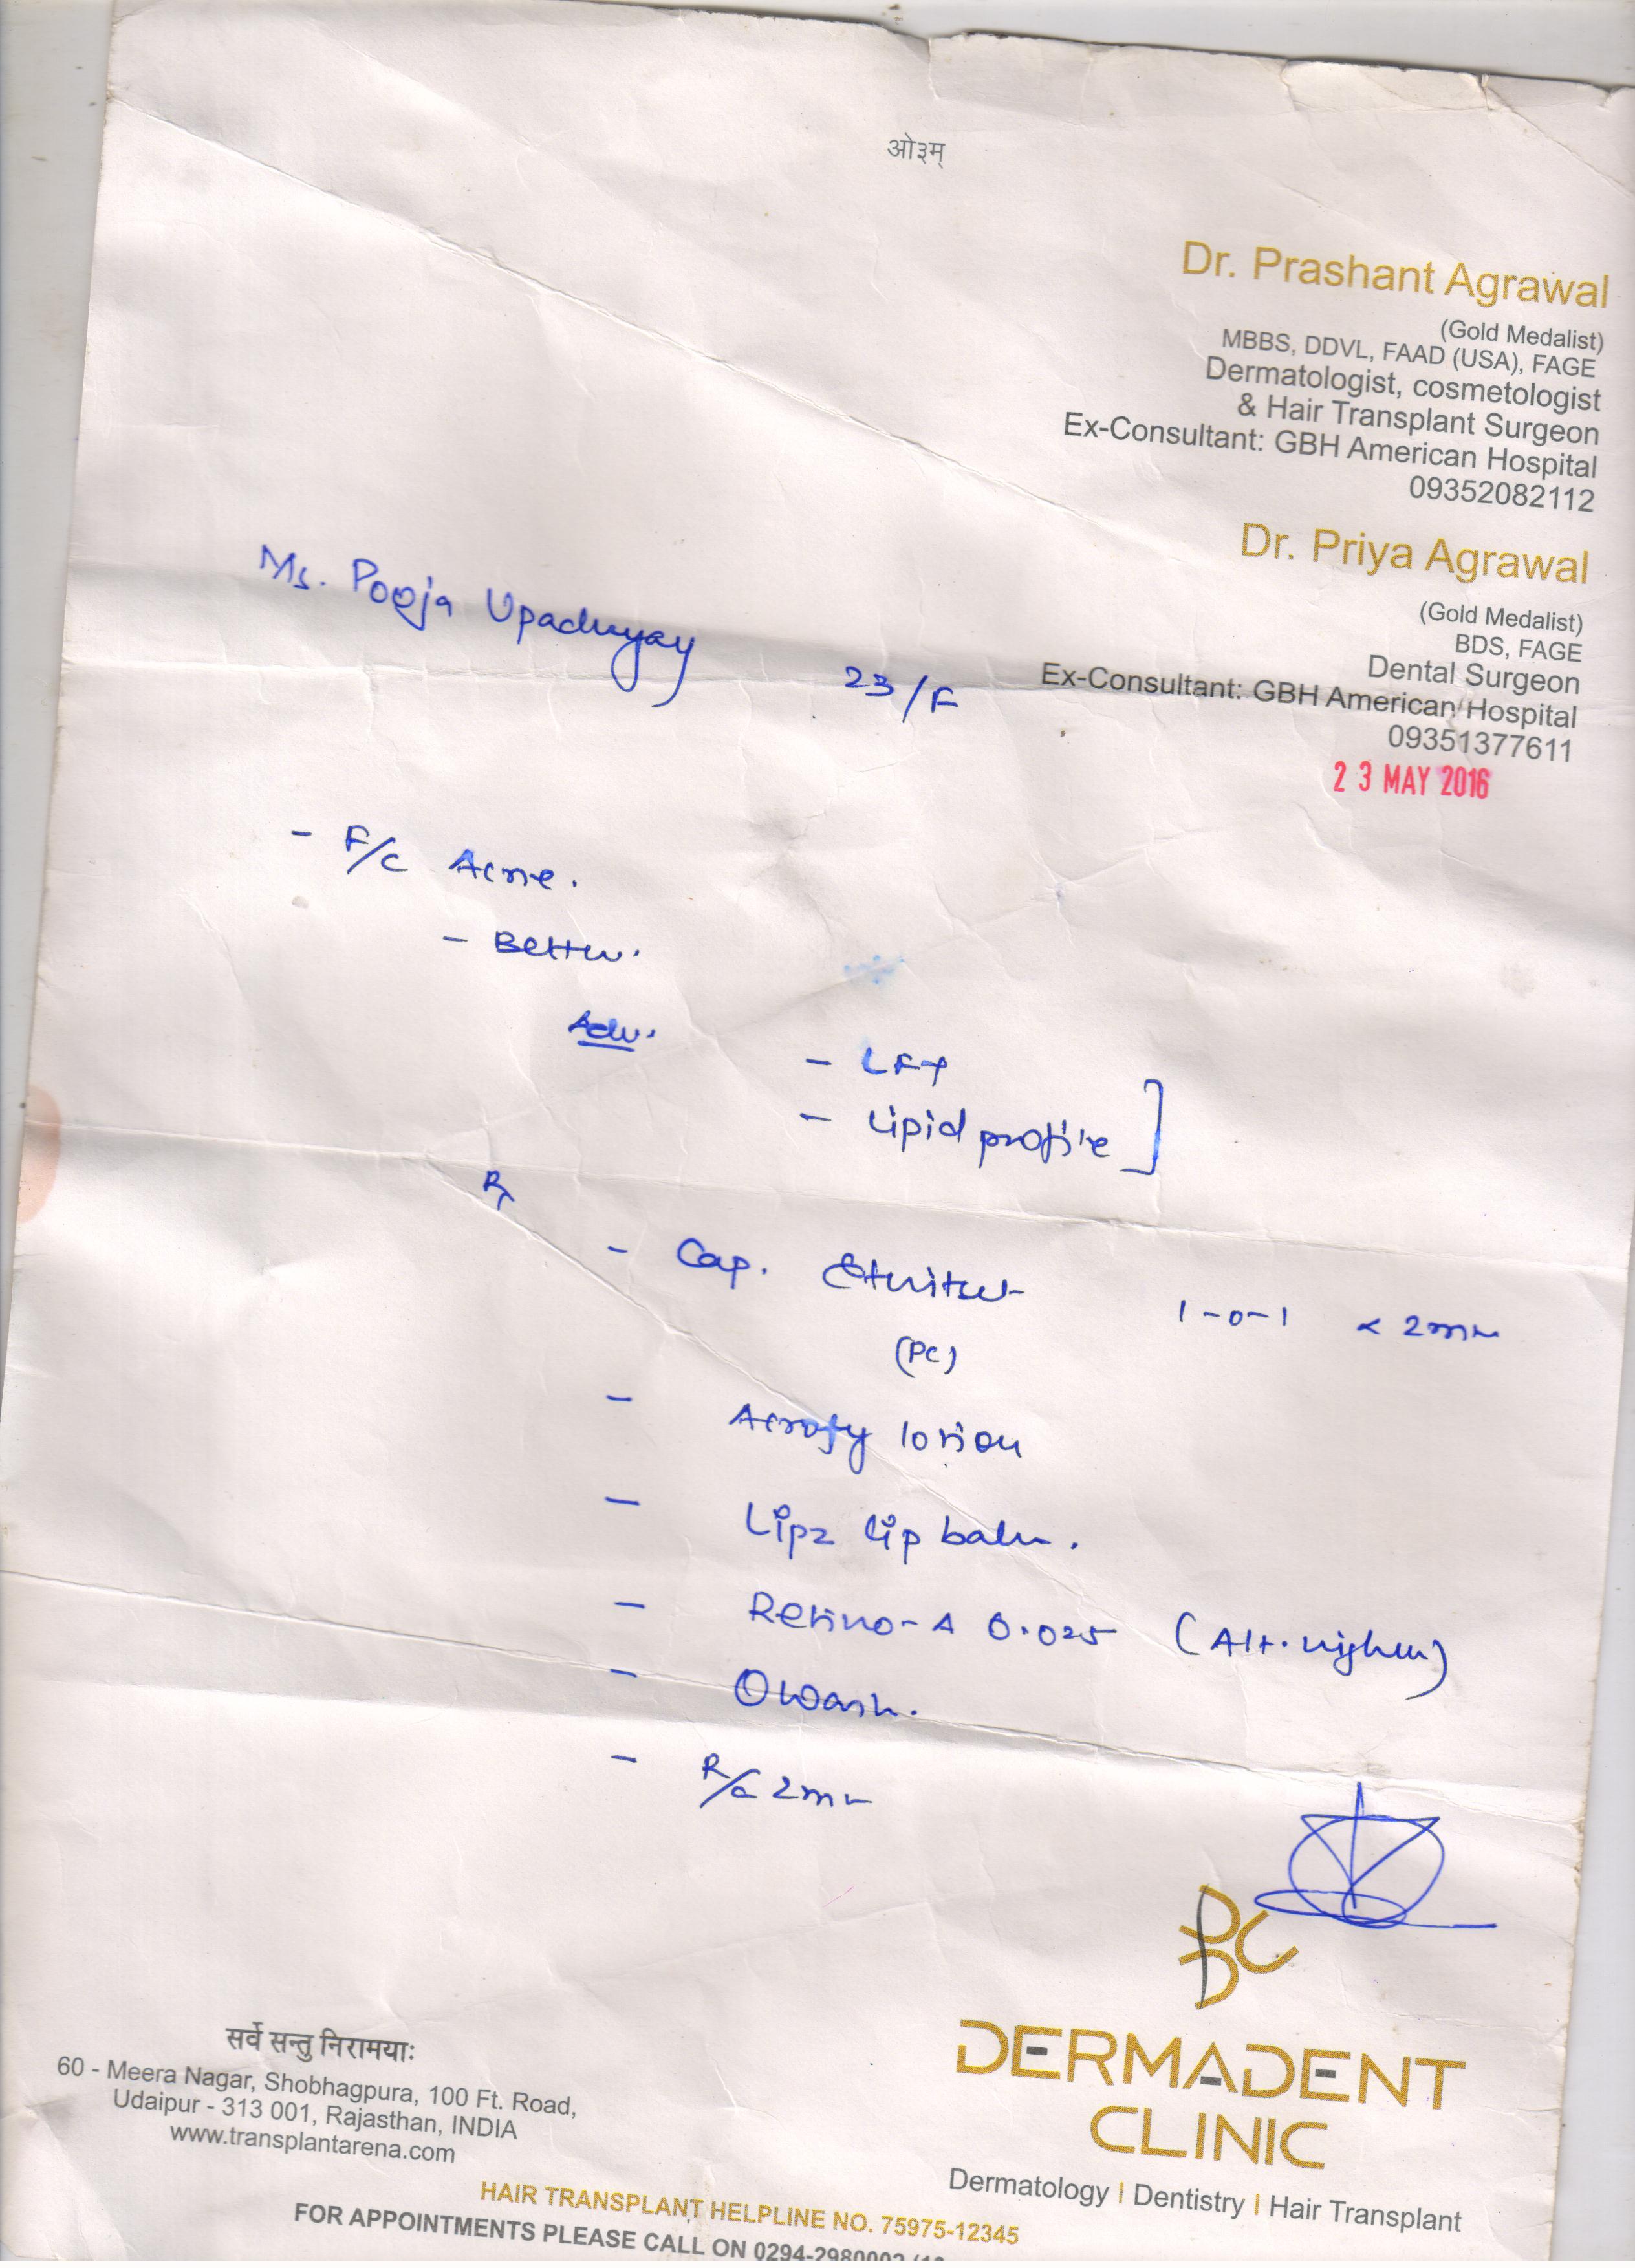 ओ३म्
Dr. Prashant Agrawal
(Gold Medalist)
MBBS, DDVL, FAAD (USA), FAGE
Dermatologist, cosmetologist
& Hair Transplant Surgeon
Ex-Consultant: GBH American Hospital
09352082112
Dr. Priya Agrawal
(Gold Medalist)
BDS, FAGE
Dental Surgeon
Ex-Consultant: GBH American Hospital
09351377611
23 MAY 2016
Ms. Pooja Upadhyay 23/F
- F/c Acne.
- Better.
Adv.
- LFT
- Lipid profile ]
Rx
- Cap. 1-0-1 x 2
(PC)
- lotion
- Lipz lip balm.
- Retino-A 0.025 (Alt. nights)
- Owash.
- R/c 2
DC
DERMADENT
CLINIC
Dermatology | Dentistry | Hair Transplant
सर्वे सन्तु निरामयाः
60 - Meera Nagar, Shobhagpura, 100 Ft. Road,
Udaipur - 313 001, Rajasthan, INDIA
www.transplantarena.com
HAIR TRANSPLANT HELPLINE NO. 75975-12345
FOR APPOINTMENTS PLEASE CALL ON 0294-2980002